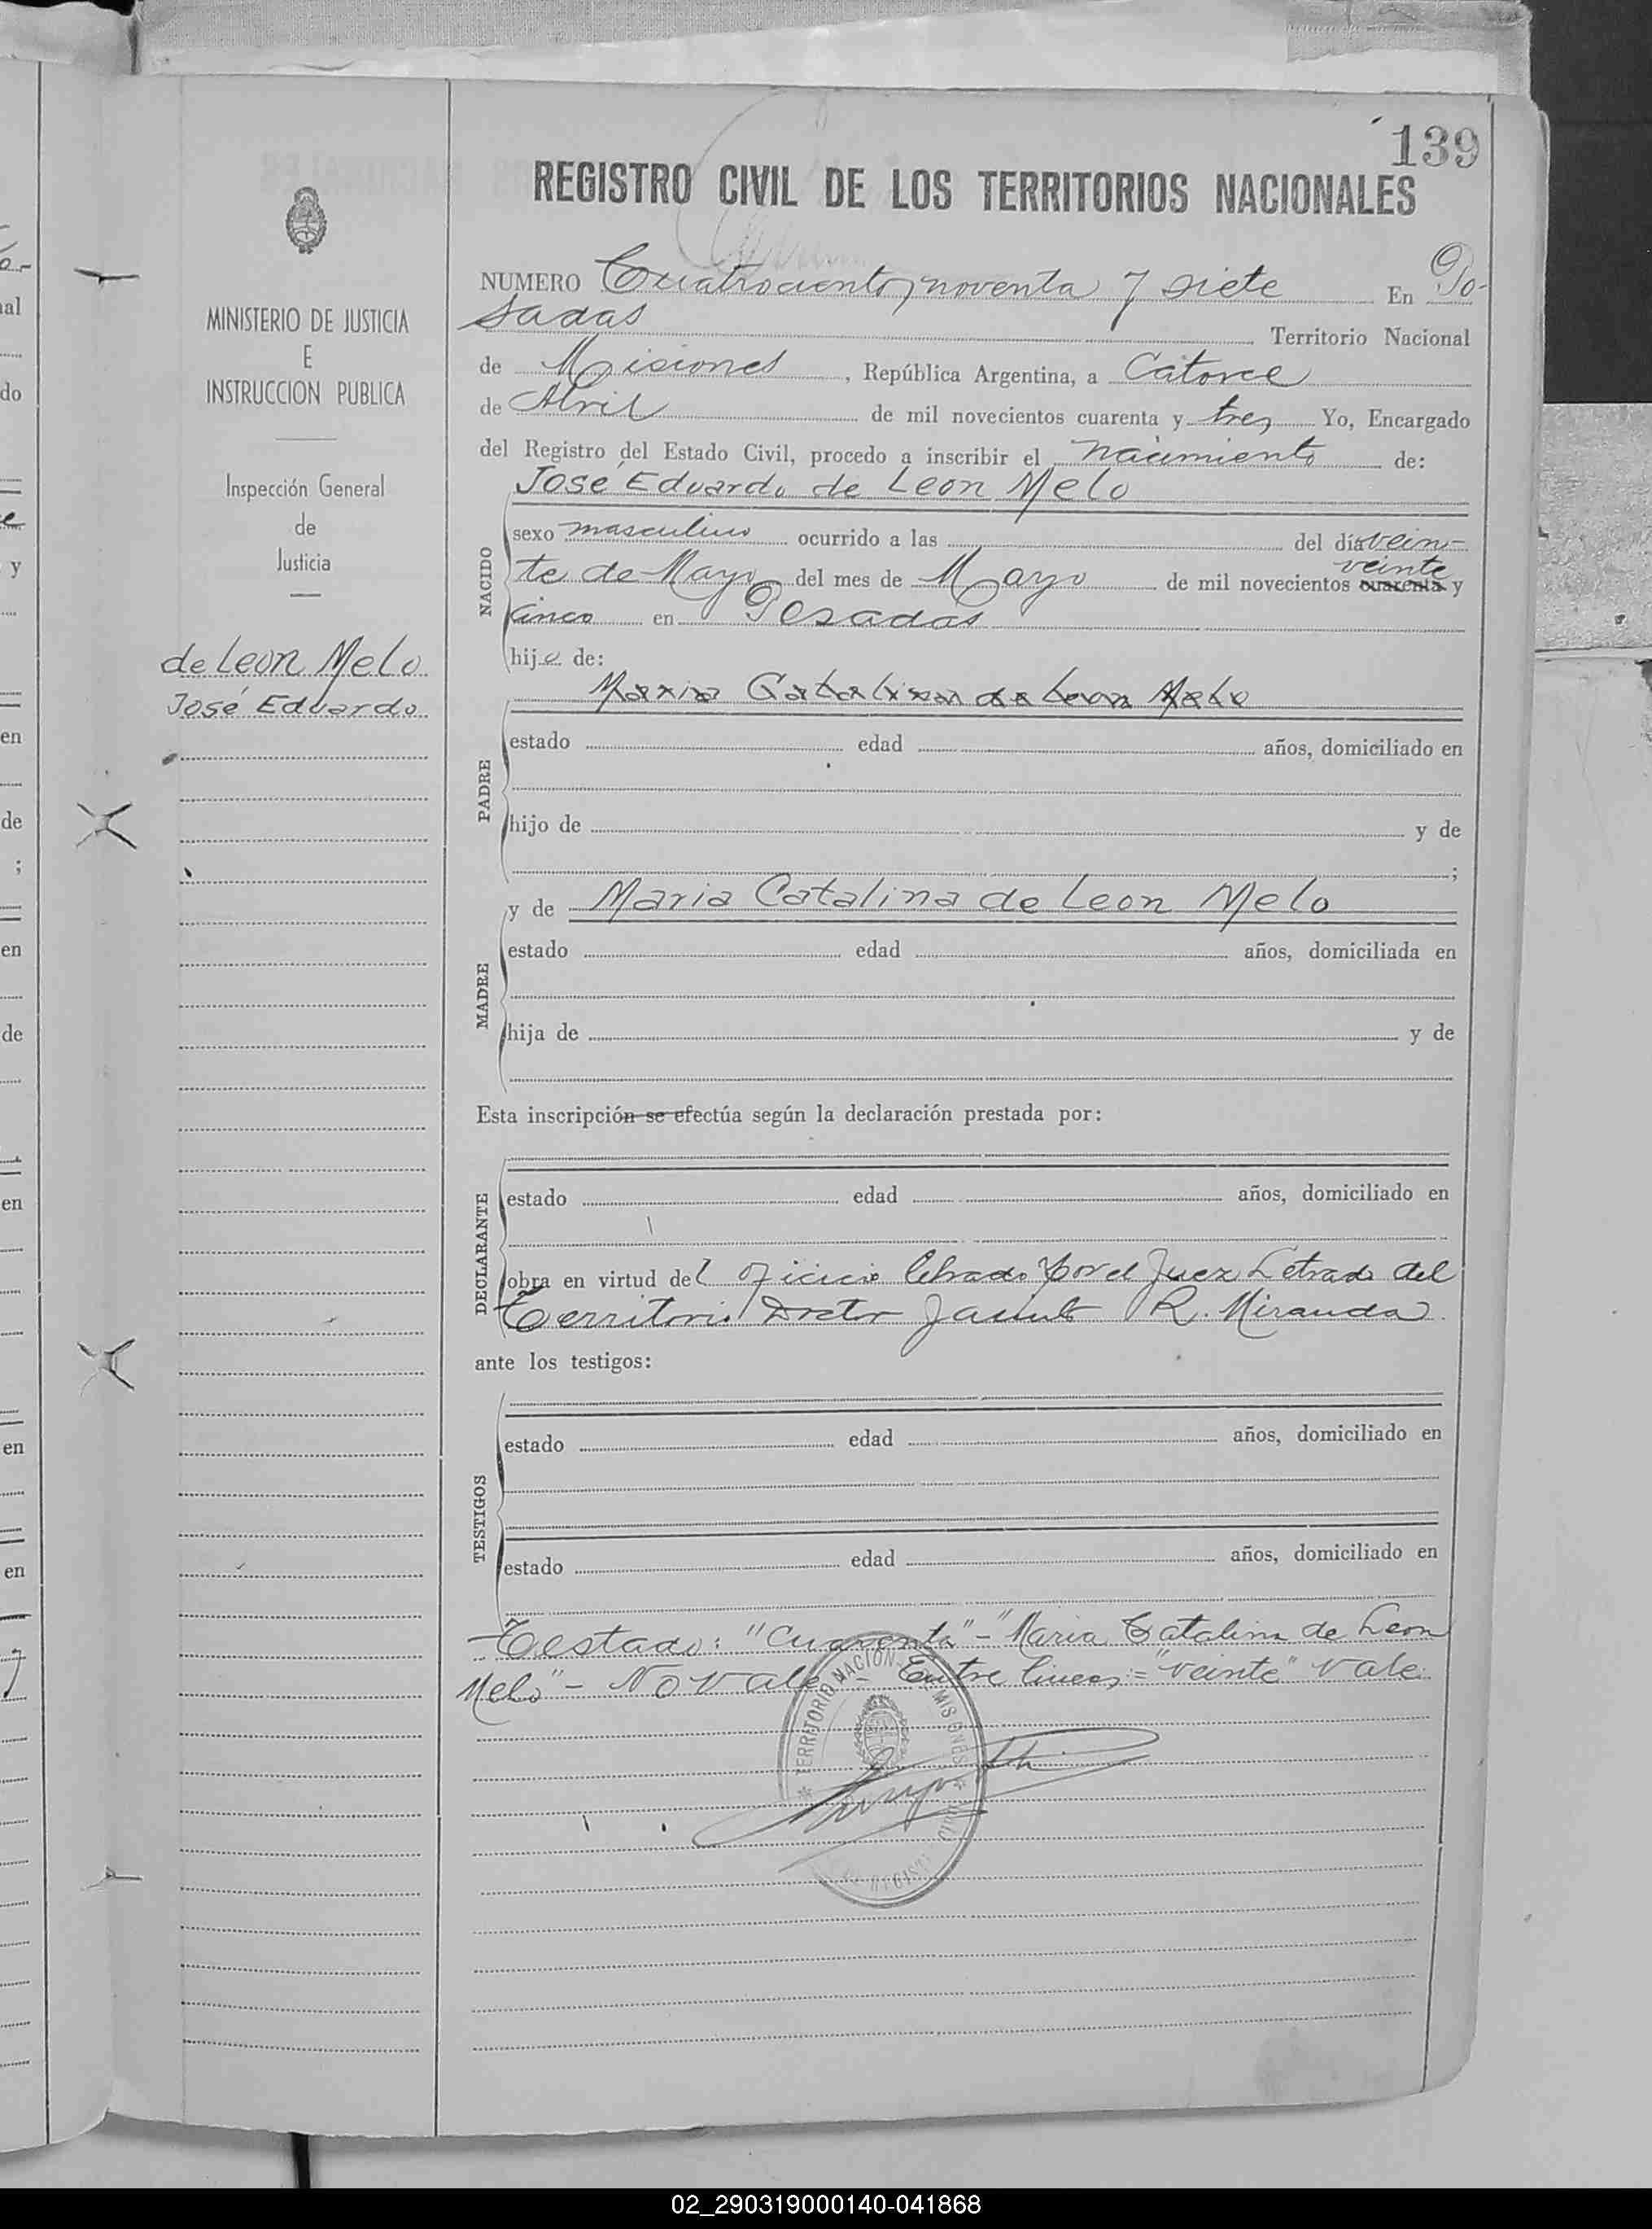 139
REGISTRO CIVIL DE LOS TERRITORIOS NACIONALES
NUMERO Cuatrocientos noventa y siete En Po-
sadas Territorio Nacional
de Misiones, República Argentina, a Catorce
de Abril de mil novecientos cuarenta y tres Yo, Encargado
del Registro del Estado Civil, procedo a inscribir el nacimiento de:
MINISTERIO DE JUSTICIA
E
INSTRUCCION PUBLICA
Inspección General
de
Justicia
de Leon Melo
José Eduardo
NACIDO
José Eduardo de Leon Melo
sexo masculino ocurrido a las del día vein-
te de Mayo del mes de Mayo de mil novecientos cuarenta veinte y
cinco en Posadas
hijo de:
PADRE
Maria Catalina de Leon Melo
estado edad años, domiciliado en
hijo de y de
;
MADRE
y de Maria Catalina de Leon Melo
estado edad años, domiciliada en
hija de y de
Esta inscripción se efectúa según la declaración prestada por:
DECLARANTE
estado edad años, domiciliado en
obra en virtud del oficio librado por el Juez Letrado del
Territorio Doctor Jacinto R. Miranda
ante los testigos:
TESTIGOS
estado edad años, domiciliado en
estado edad años, domiciliado en
Testado: "Cuarenta" - "Maria Catalina de Leon
Melo" - No Vale - Entre lineas = "veinte" Vale
TERRITORIO NACIONAL MISIONES
02_290319000140-041868